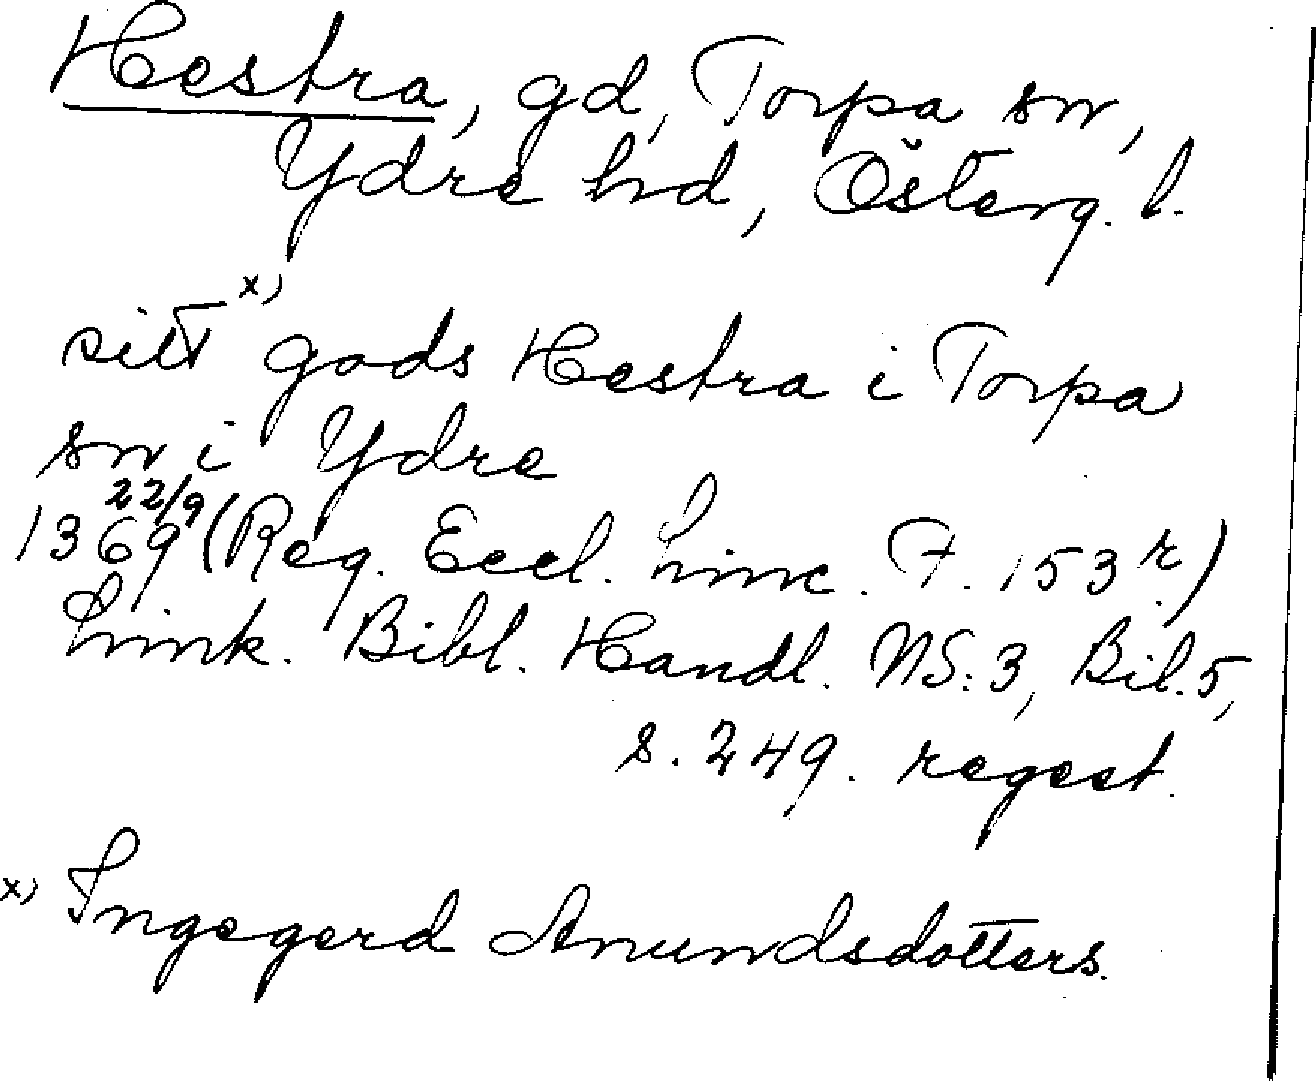 Hestra, gd, Torpa sn,
Ydre hd, Österg. l.
sitt x) gods Hestra i Torpa
sn i Ydre
1369 22/9 (Reg. Eccl. Linc. F. 153 r.)
Link. Bibl. Handl. NS: 3, Bil. 5,
s. 249. regest.
x) Ingegerd Anundsdotters.